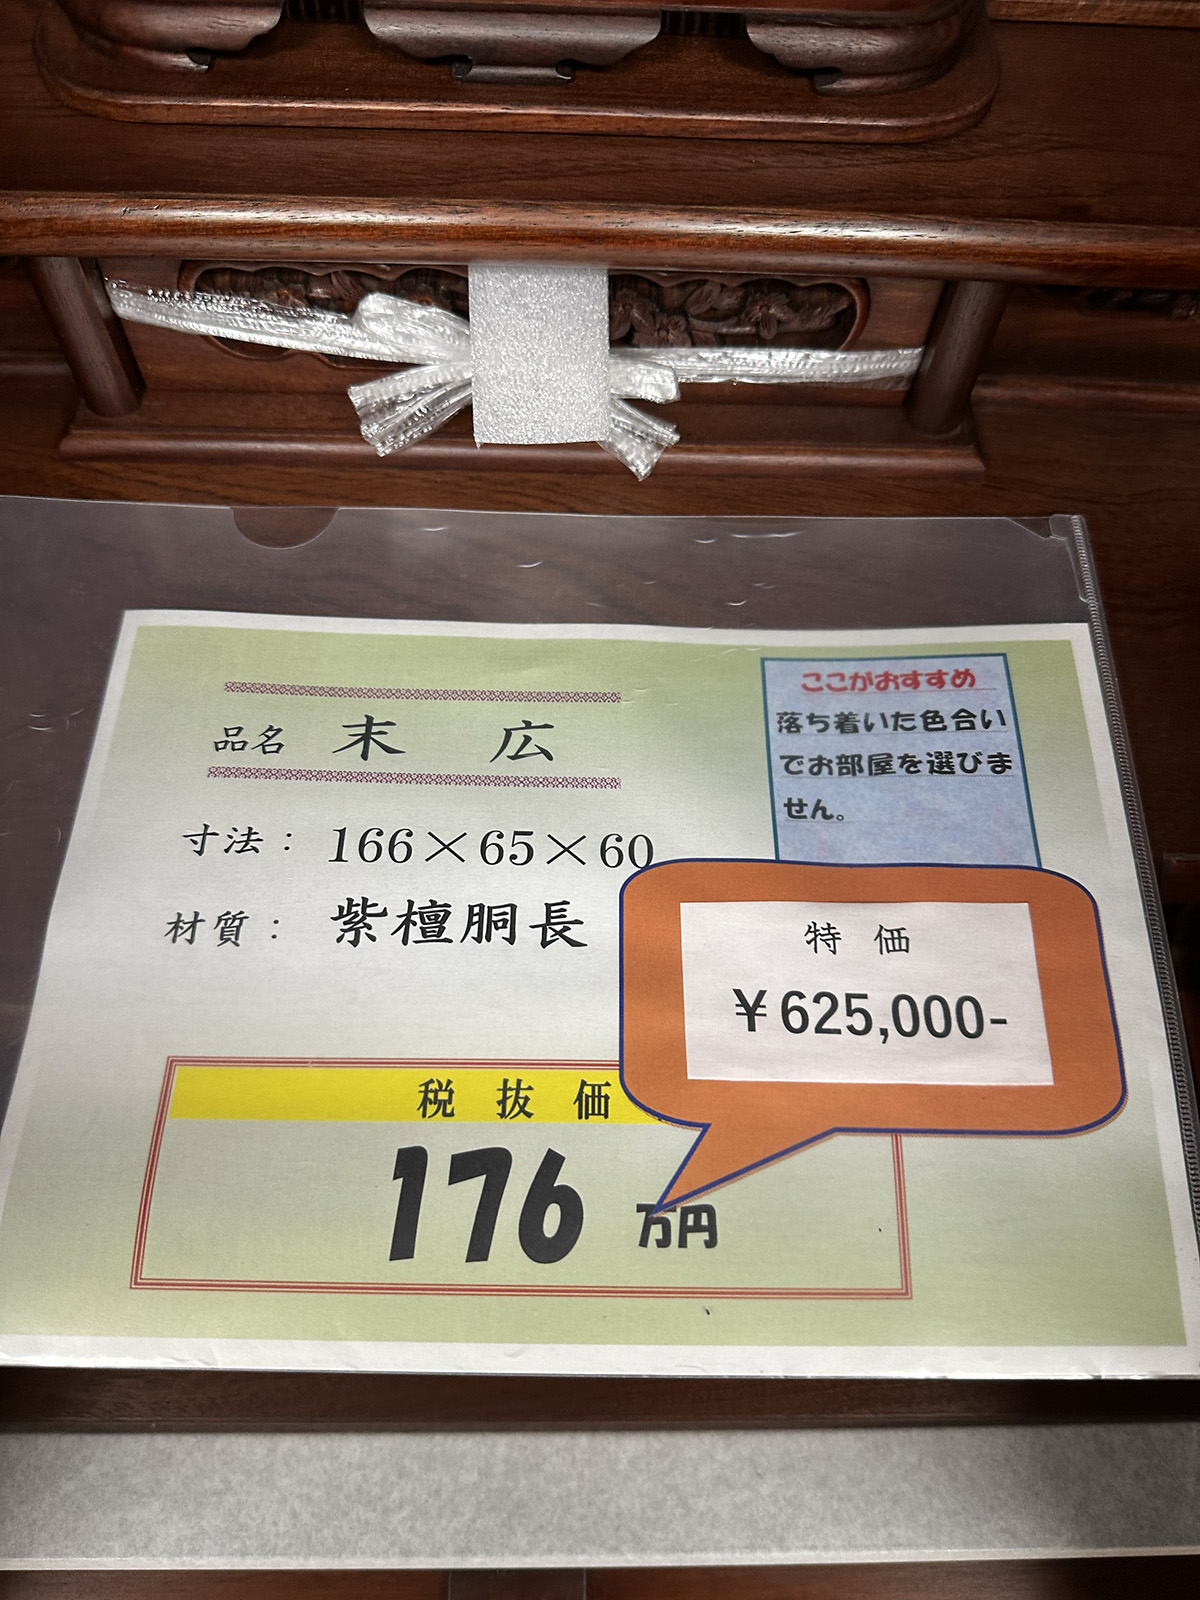 品名 末 広
寸法： 166×65×60
材質： 紫檀胴長
ここがおすすめ
落ち着いた色合い
でお部屋を選びま
せん。
特 価
￥625,000-
税 抜 価
176 万円